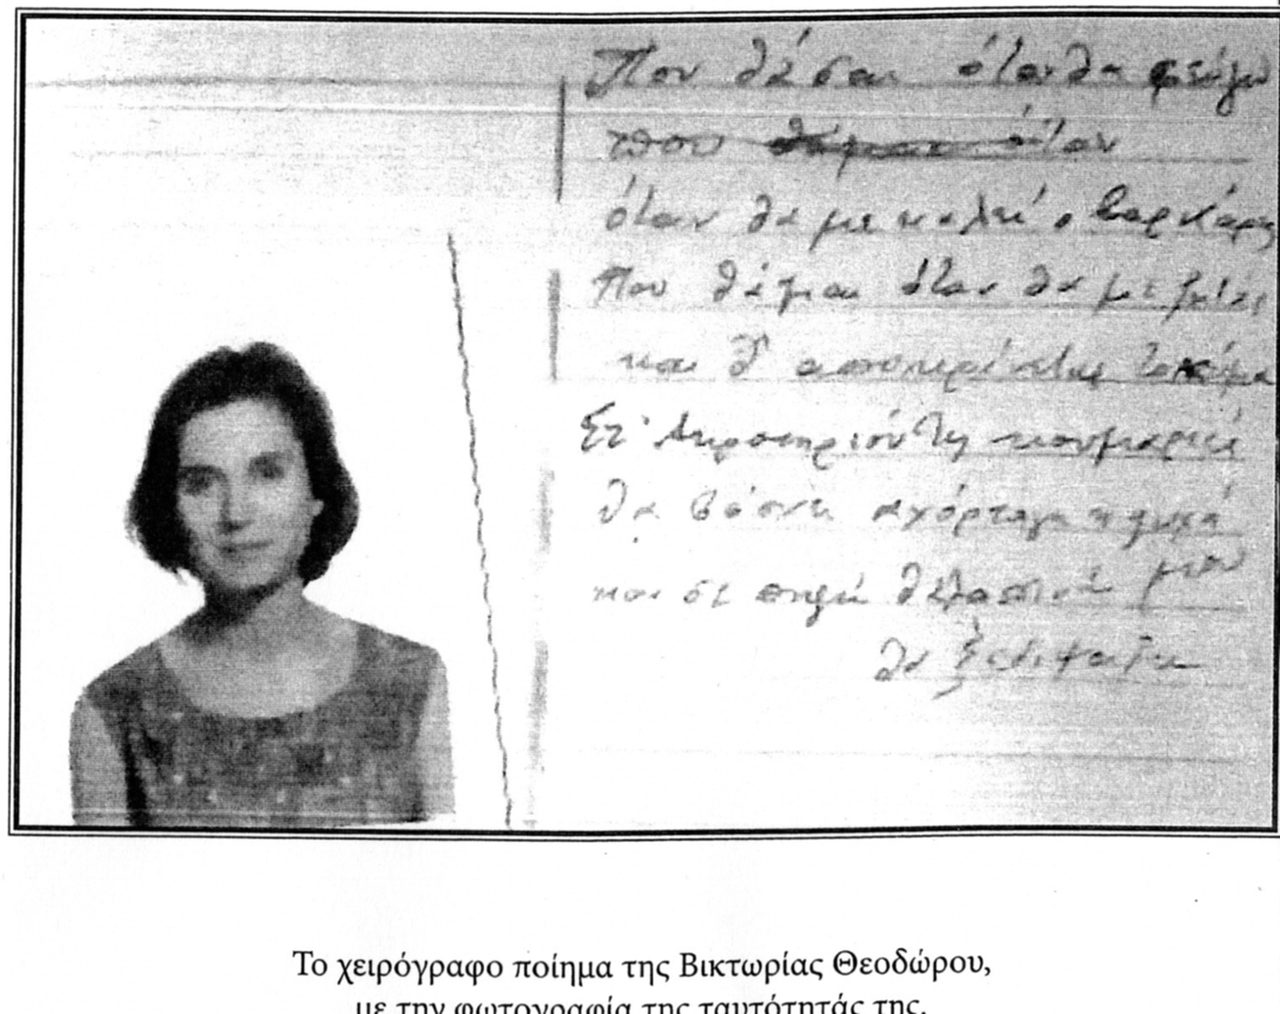 Που θάσαι όταν θα φεύγω
που θάμαι όταν
όταν θα με καλεί ο βαρκάρης
Που θάμαι όταν θα με ζητάς
και θ' αποκρίνεται το κύμα
Στ' Ακρωτηριού τις κουμαριές
θα βόσκει αχόρταγα η ψυχή
μου
και σε πηγή θαλασσινή
θα ξεδιψάει
Το χειρόγραφο ποίημα της Βικτωρίας Θεοδώρου,
με την φωτογραφία της ταυτότητάς της.